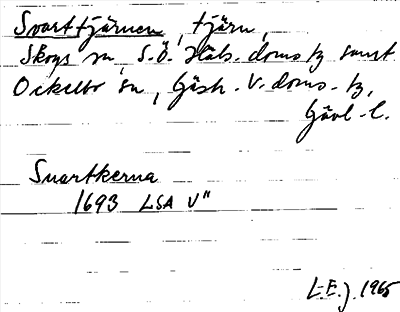 Svarttjärnen, tjärn,
Skogs sn, S.Ö. Häls. doms. tg samt
Ockelbo sn, Gästr. V. doms. tg,
Gävl. l.
Suartkerna
1693 LSA V"
L.E.J. 1965